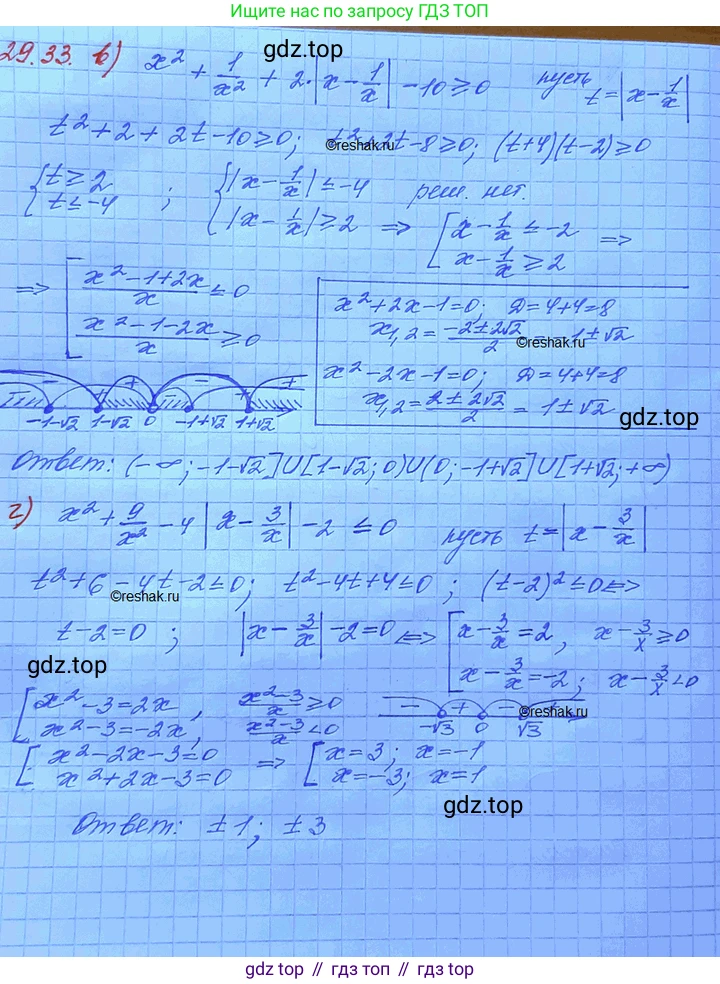 Ищите нас по запросу ГДЗ ТОП
29.33. в) x² + 1/x² + 2·|x − 1/x| − 10 ≥ 0 пусть t = |x − 1/x|
gdz.top
t² + 2 + 2t − 10 ≥ 0; t² + 2t − 8 ≥ 0; (t+4)(t−2) ≥ 0
©reshak.ru
{ t ≥ 2 ; { |x − 1/x| ≤ −4 реш. нет.
t ≤ −4 |x − 1/x| ≥ 2 => [ x − 1/x ≤ −2 =>
x − 1/x ≥ 2
=> [ (x² − 1 + 2x)/x ≤ 0
(x² − 1 − 2x)/x ≥ 0
x² + 2x − 1 = 0; D = 4+4 = 8
x₁,₂ = (−2 ± 2√2)/2 = −1 ± √2
©reshak.ru
x² − 2x − 1 = 0; D = 4+4 = 8
x₁,₂ = (2 ± 2√2)/2 = 1 ± √2
gdz.top
− + − + − +
−1−√2 1−√2 0 −1+√2 1+√2
Ответ: (−∞; −1−√2] U [1−√2; 0) U (0; −1+√2] U [1+√2; +∞)
г) x² + 9/x² − 4 |x − 3/x| − 2 ≤ 0 пусть t = |x − 3/x|
t² + 6 − 4t − 2 ≤ 0; t² − 4t + 4 ≤ 0; (t−2)² ≤ 0 <=>
©reshak.ru
t − 2 = 0; |x − 3/x| − 2 = 0 <=> [ x − 3/x = 2, x − 3/x ≥ 0
x − 3/x = −2; x − 3/x < 0
gdz.top
[ x² − 3 = 2x, (x²−3)/x ≥ 0
x² − 3 = −2x, (x²−3)/x < 0
− + −
−√3 0 √3
©reshak.ru
[ x² − 2x − 3 = 0 => [ x = 3; x = −1
x² + 2x − 3 = 0 x = −3; x = 1
gdz.top
Ответ: ±1; ±3
gdz top // гдз топ // gdz.top